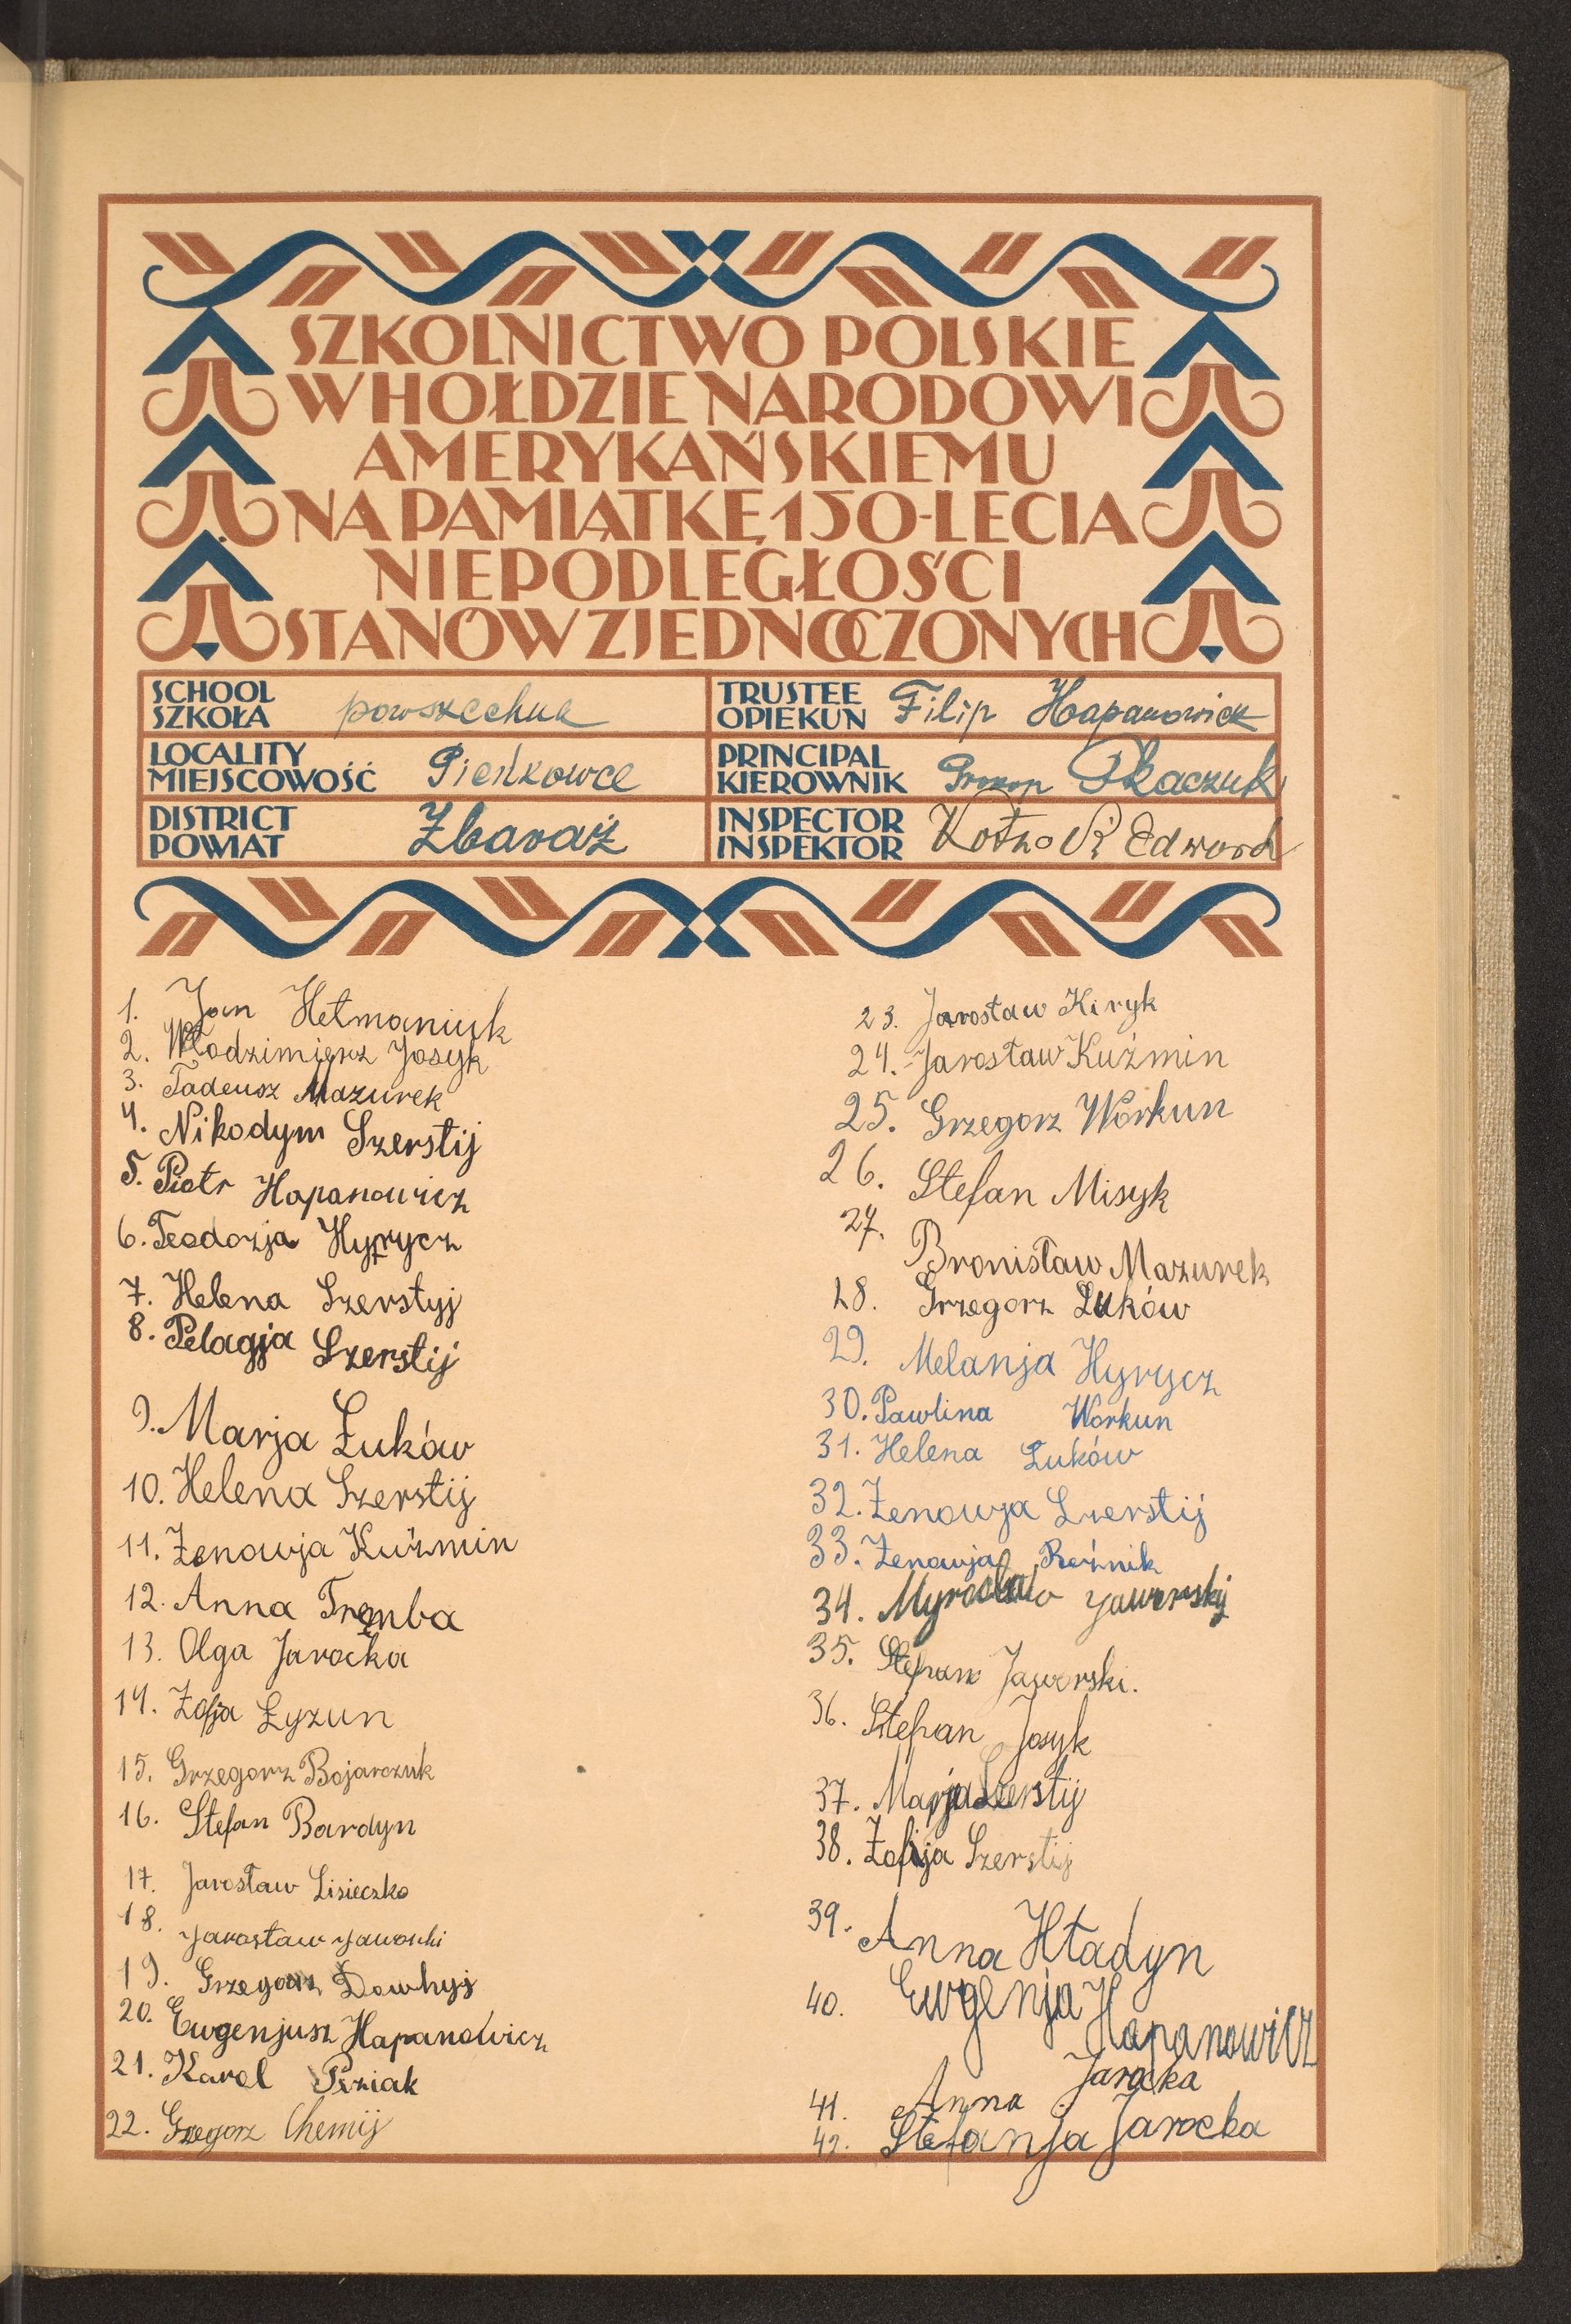 SZKOLNICTWO POLSKIE
W HOŁDZIE NARODOWI
AMERYKAŃSKIEMU
NA PAMIĄTKĘ 150-LECIA
NIEPODLEGŁOŚCI
STANÓW ZJEDNOCZONYCH
SCHOOL
SZKOŁA powszechna
TRUSTEE
OPIEKUN Filip Hapanowicz
LOCALITY
MIEJSCOWOŚĆ Pieńkowce
PRINCIPAL
KIEROWNIK Prokop Tkaczuk
DISTRICT
POWIAT Zbaraż
INSPECTOR
INSPEKTOR Edward
1. Jan Hetmaniuk
2. Włodzimierz Josyk
3. Tadeusz Mazurek
4. Nikodym Szerstij
5. Piotr Hapanowicz
6. Teodozja Hyrycz
7. Helena Szerstyj
8. Pelagja Szerstij
9. Marja Łuków
10. Helena Szerstij
11. Zenowja Kuźmin
12. Anna Tremba
13. Olga Jarocka
14. Zofja Łyzun
15. Grzegorz Bojarczuk
16. Stefan Bardyn
17. Jarosław Lisieczko
18. Jarosław Jaworski
19. Grzegorz Dowhyj
20. Ewgenjusz Hapanowicz
21. Karol Peziak
22. Grzegorz Chemij
23. Jarosław Kiryk
24. Jarosław Kuźmin
25. Grzegorz Workun
26. Stefan Misyk
27. Bronisław Mazurek
28. Grzegorz Łuków
29. Melanja Hyrycz
30. Pawlina Workun
31. Helena Łuków
32. Zenowja Szerstij
33. Zenowja Reźnik
34. Myrosław Jaworskij
35. Stefan Jaworski.
36. Stefan Josyk
37. Marja Szerstij
38. Zofija Szerstij
39. Anna Hładyn
40. Ewgenja Hapanowicz
41. Anna Jarocka
42. Stefanja Jarocka